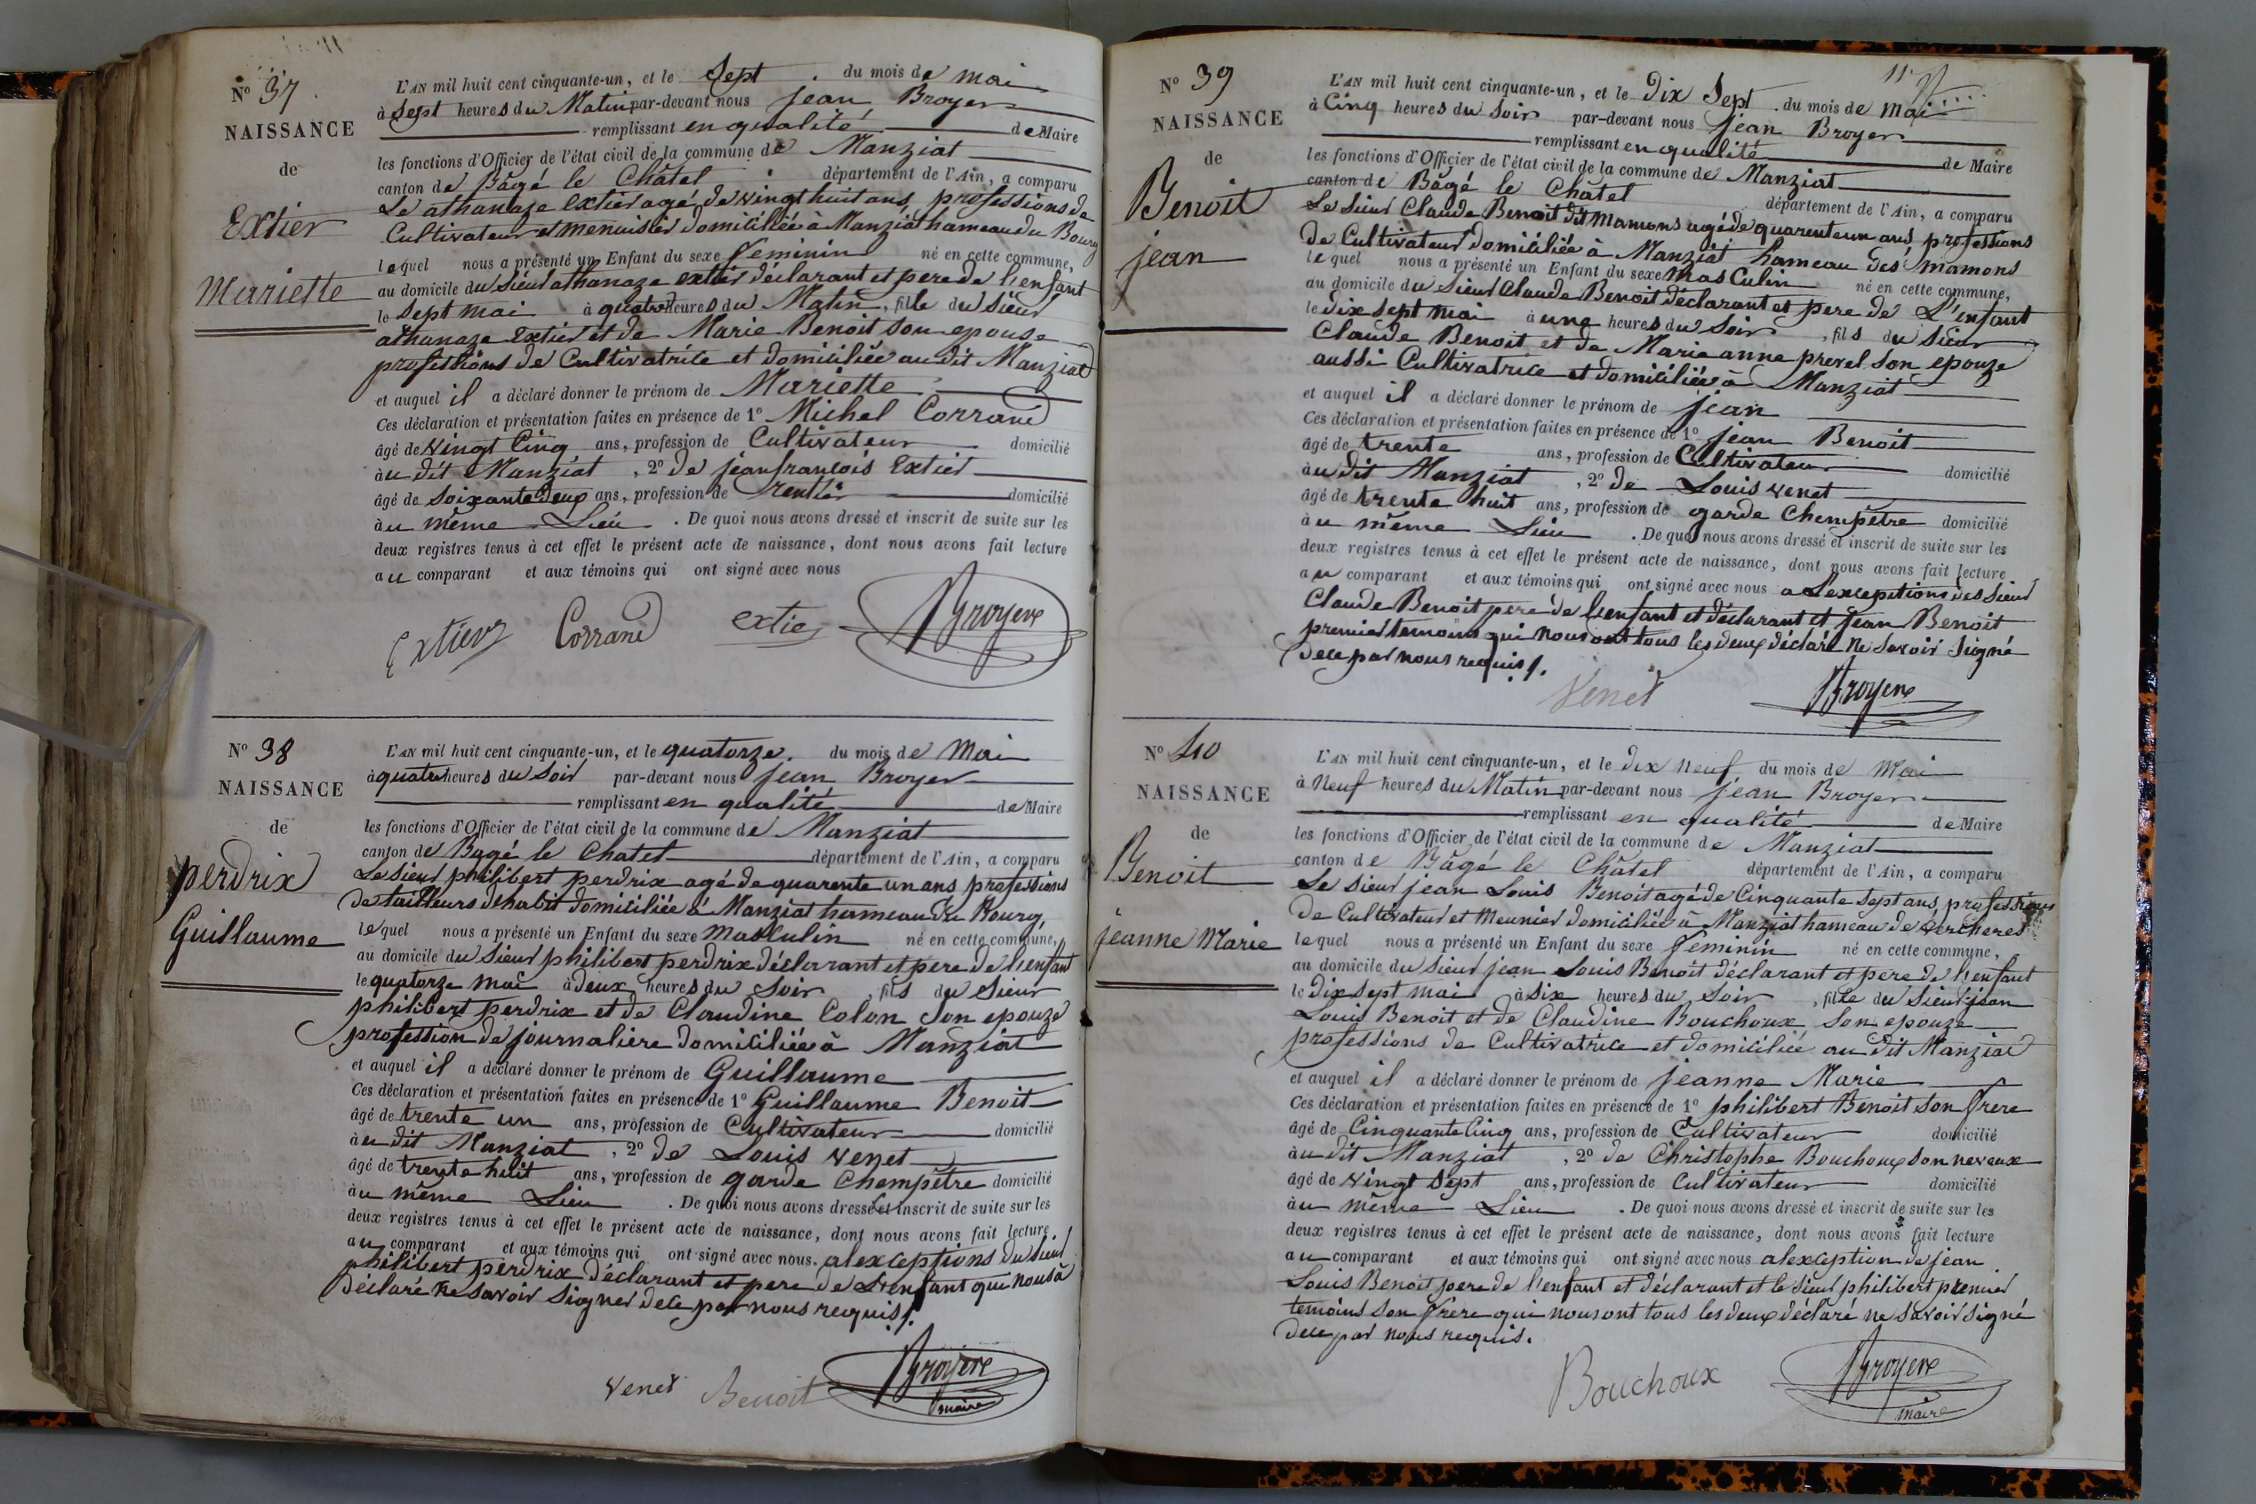 N° 37
NAISSANCE
de
Extier
Mariette
L'AN mil huit cent cinquante-un, et le Sept . du mois de mai
à Sept heures du Matin par-devant nous jean Broyer
remplissant en qualité de Maire
les fonctions d'Officier de l'état civil de la commune de Manziat
canton de Bâgé le Châtel département de l'Ain, a comparu
Le athanaze Extier agé de vingt huit ans, professions de
Cultivateur et menuisier domiciliée à Manziat hameau du Bourg
lequel nous a présenté un Enfant du sexe feminin né en cette commune,
au domicile du sieur athanaze extier déclarant et pere de l'enfant
le sept mai à quatre heures du Matin, fille du sieur
athanaze Extier et de Marie Benoit son epouse
professions de Cultivatrice et domiciliée au dit Manziat
et auquel il a déclaré donner le prénom de Mariette
Ces déclaration et présentation faites en présence de 1° Michel Corrand
âgé de vingt Cinq ans, profession de Cultivateur domicilié
au dit Manziat , 2° de jean françois Extier
âgé de soixante deux ans, profession de rentier domicilié
au même Lieu . De quoi nous avons dressé et inscrit de suite sur les
deux registres tenus à cet effet le présent acte de naissance, dont nous avons fait lecture
au comparant et aux témoins qui ont signé avec nous
Extier Corrand extier Broyer
N° 38
NAISSANCE
de
perdrix
Guillaume
L'AN mil huit cent cinquante-un, et le quatorze. du mois de Mai
à quatre heures du Soir par-devant nous jean Broyer
remplissant en qualité de Maire
les fonctions d'Officier de l'état civil de la commune de Manziat
canton de Bagé le Chatel département de l'Ain, a comparu
Le sieur philibert perdrix agé de quarente un ans professions
de tailleurs d'habit domiciliée à Manziat hameau du Bourg,
lequel nous a présenté un Enfant du sexe Masculin né en cette commune,
au domicile du sieur philibert perdrix déclarant et pere de l'enfant
le quatorze mai à deux heures du Soir , fils du Sieur
philibert perdrix et de Claudine Colon Son epouze
profession de journaliere domiciliée à Manziat
et auquel il a déclaré donner le prénom de Guillaume
Ces déclaration et présentation faites en présence de 1° Guillaume Benoit
âgé de trente un ans, profession de Cultivateur domicilié
au dit Manziat , 2° de Louis venet
âgé de trente huit ans, profession de garde Chempêtre domicilié
au même Lieu . De quoi nous avons dressé et inscrit de suite sur les
deux registres tenus à cet effet le présent acte de naissance, dont nous avons fait lecture
au comparant et aux témoins qui ont signé avec nous. alexceptions du sieur
philibert perdrix déclarant et pere de L'enfant qui nous à
déclaré ne savoir signer dece par nous requis /.
venet Benoit Broyer
maire
N° 39
NAISSANCE
de
Benoit
jean
L'AN mil huit cent cinquante-un, et le Dix Sept . du mois de mai
à Cinq heures du Soir par-devant nous jean Broyer
remplissant en qualité de Maire
les fonctions d'Officier de l'état civil de la commune de Manziat
canton de Bâgé le Châtel département de l'Ain, a comparu
Le sieur Claude Benoit dit Mamons agé de quarente un ans, professions
de Cultivateur domiciliée à Manziat hameau des mamons
lequel nous a présenté un Enfant du sexe masCulin né en cette commune,
au domicile du sieur Claude Benoit déclarant et pere de L'enfant
le dix sept mai à une heures du Soir , fils du sieur
Claude Benoit et de Marie anne prevel son epouze
aussi Cultivatrice et domiciliée à Manziat
et auquel il a déclaré donner le prénom de jean
Ces déclaration et présentation faites en présence de 1° jean Benoit
âgé de trente ans, profession de Cultivateur domicilié
au dit Manziat , 2° de Louis venet
âgé de trente huit ans, profession de garde Chempêtre domicilié
au même Lieu . De quoi nous avons dressé et inscrit de suite sur les
deux registres tenus à cet effet le présent acte de naissance, dont nous avons fait lecture
au comparant et aux témoins qui ont signé avec nous a Lexcepitions des Sieur
Claude Benoit pere de l'enfant et déclarant et jean Benoit
premier temoins qui nous ont tous les deux déclaré ne savoir signé
dece par nous requis /.
Venet Broyer
N° 40
NAISSANCE
de
Benoit
jeanne Marie
L'AN mil huit cent cinquante-un, et le dix neuf du mois de Mai
à Neuf heures du Matin par-devant nous jean Broyer
remplissant en qualité de Maire
les fonctions d'Officier de l'état civil de la commune de Manziat
canton de Bâgé le Châtel département de l'Ain, a comparu
Le Sieur jean Louis Benoit agé de Cinquante sept ans, professions
de Cultivateur et Meunier domiciliée à Manziat hameau de vercheres
lequel nous a présenté un Enfant du sexe feminin né en cette commune,
au domicile du sieur jean Louis Benoit déclarant et pere de l'enfant
le dix sept mai à six heures du Soir , fille du sieur jean
Louis Benoit et de Claudine Bouchoux, son epouze
professions de Cultivatrice et domiciliée au dit Manziat
et auquel il a déclaré donner le prénom de jeanne Marie
Ces déclaration et présentation faites en présence de 1° philibert Benoit son frere
âgé de Cinquante Cinq ans, profession de Cultivateur domicilié
au dit Manziat , 2° de Christophe Bouchoux son neveux
âgé de vingt sept ans, profession de Cultivateur domicilié
au même Lieu . De quoi nous avons dressé et inscrit de suite sur les
deux registres tenus à cet effet le présent acte de naissance, dont nous avons fait lecture
au comparant et aux témoins qui ont signé avec nous alexception de jean
Louis Benoit pere de l'enfant et déclarant et le sieur philibert premier
temoins son frere qui nous ont tous les deux déclaré ne savoir signé
dece par nous requis.
Bouchoux Broyer
maire